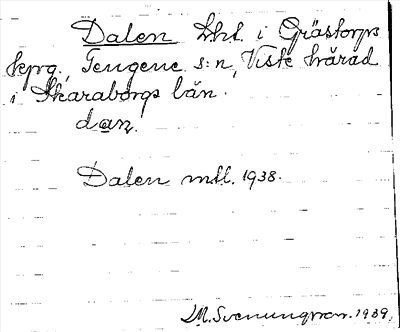 Dalen lht. i Grästorps
kprg., Tengene s:n, Viste härad
i Skaraborgs län.
dan,
Dalen mtl. 1938.
M. Svenungsson. 1939.